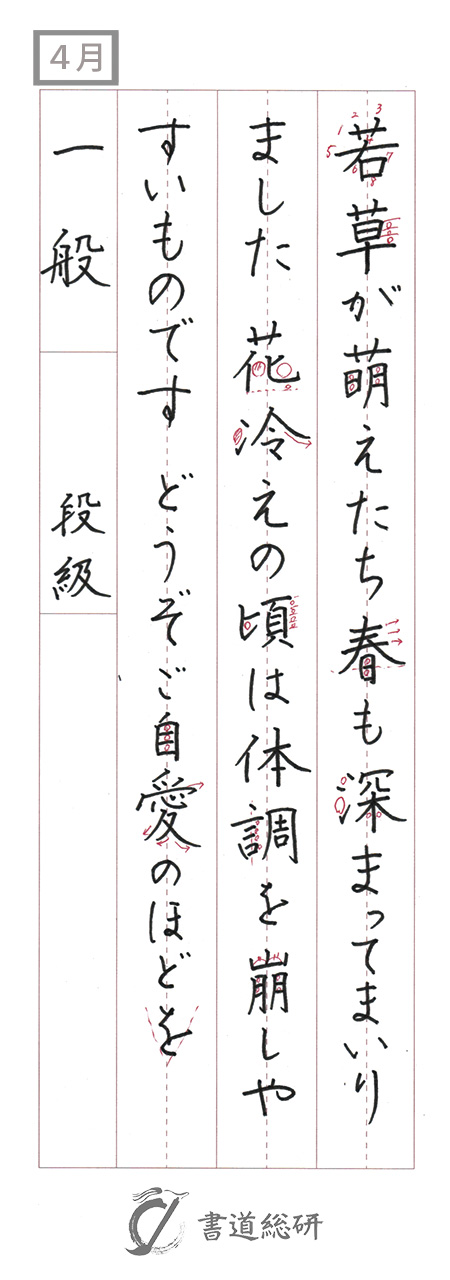 4月
若草が萌えたち春も深まってまいり
ました 花冷えの頃は体調を崩しや
すいものです どうぞご自愛のほどを
一般
段級
1 2 3 4 5 6 7 8
書道総研